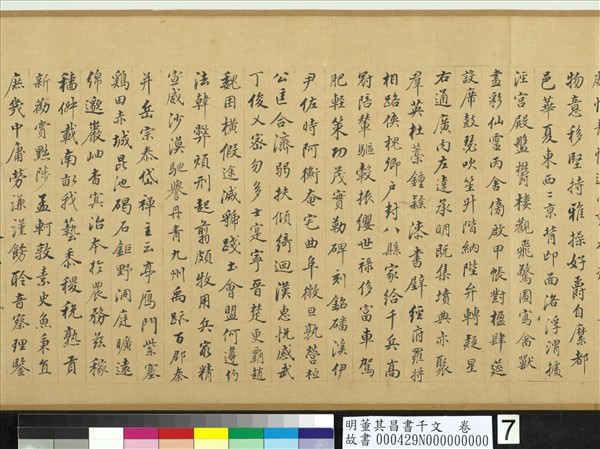 物意移堅持雅操好爵自縻都
邑華夏東西二京背邙面洛浮渭據
涇宮殿盤鬱樓觀飛驚圖寫禽獸
畫彩仙靈丙舍傍啟甲帳對楹肆筵
設席鼓瑟吹笙升階納陛弁轉疑星
右通廣內左達承明既集墳典亦聚
羣英杜稾鍾隸漆書壁經府羅將
相路俠槐卿戶封八縣家給千兵高
冠陪輦驅轂振纓世祿侈富車駕
肥輕策功茂實勒碑刻銘磻溪伊
尹佐時阿衡奄宅曲阜微旦孰營桓
公匡合濟弱扶傾綺迴漢惠悅感武
丁俊乂密勿多士寔寧晉楚更霸趙
魏困橫假途滅虢踐土會盟何遵約
法韓弊煩刑起翦頗牧用兵最精
宣威沙漠馳譽丹青九州禹跡百郡秦
并岳宗泰岱禪主云亭鴈門紫塞
雞田赤城昆池碣石鉅野洞庭曠遠
綿邈巖岫杳冥治本於農務茲稼
穡俶載南畝我藝黍稷稅熟貢
新勸賞黜陟孟軻敦素史魚秉直
庶幾中庸勞謙謹敕聆音察理鑒
明董其昌書千文 卷
故書000429N000000000
7